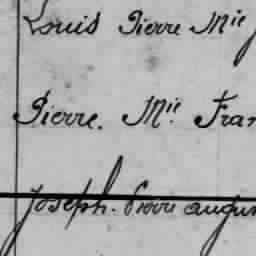 Louis Pierre Mie
Pierre. Mie. Fran
Joseph. Pierre augus